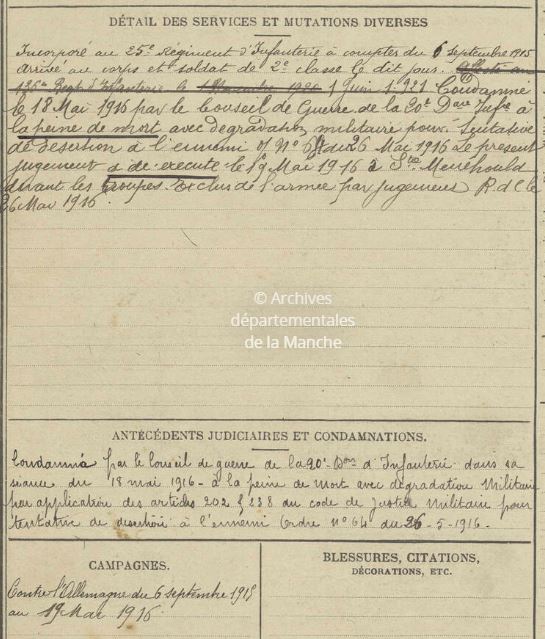 DÉTAIL DES SERVICES ET MUTATIONS DIVERSES
Incorporé au 25e Régiment d'Infanterie à compter du 6 septembre 1915
Arrivé au corps et soldat de 2e classe le dit jour.
136e Regt d'Infanterie le 1 Juin 1921 Condamné
le 18 Mai 1916 par le Conseil de Guerre de la 20e Don Infie à
la peine de mort avec dégradation militaire pour tentative
de desertion à l'ennemi O/ No 64 du 26 Mai 1916 Le présent
jugement a été exécuté le 19 Mai 1916 à Ste Menéhould
devant les troupes. Exclus de l'armée par jugement R d C le
26 Mai 1916.
© Archives
départementales
de la Manche
ANTÉCÉDENTS JUDICIAIRES ET CONDAMNATIONS.
Condamné par le Conseil de guerre de la 20e Don d'Infanterie dans sa
séance du 18 mai 1916 - à la peine de mort avec dégradation Militaire
par application des articles 202 & 238 du code de Justice Militaire pour
tentative de desertion à l'ennemi Ordre No 64 du 26-5-1916.
CAMPAGNES.
Contre l'Allemagne du 6 septembre 1915
au 19 Mai 1916.
BLESSURES, CITATIONS,
DÉCORATIONS, ETC.